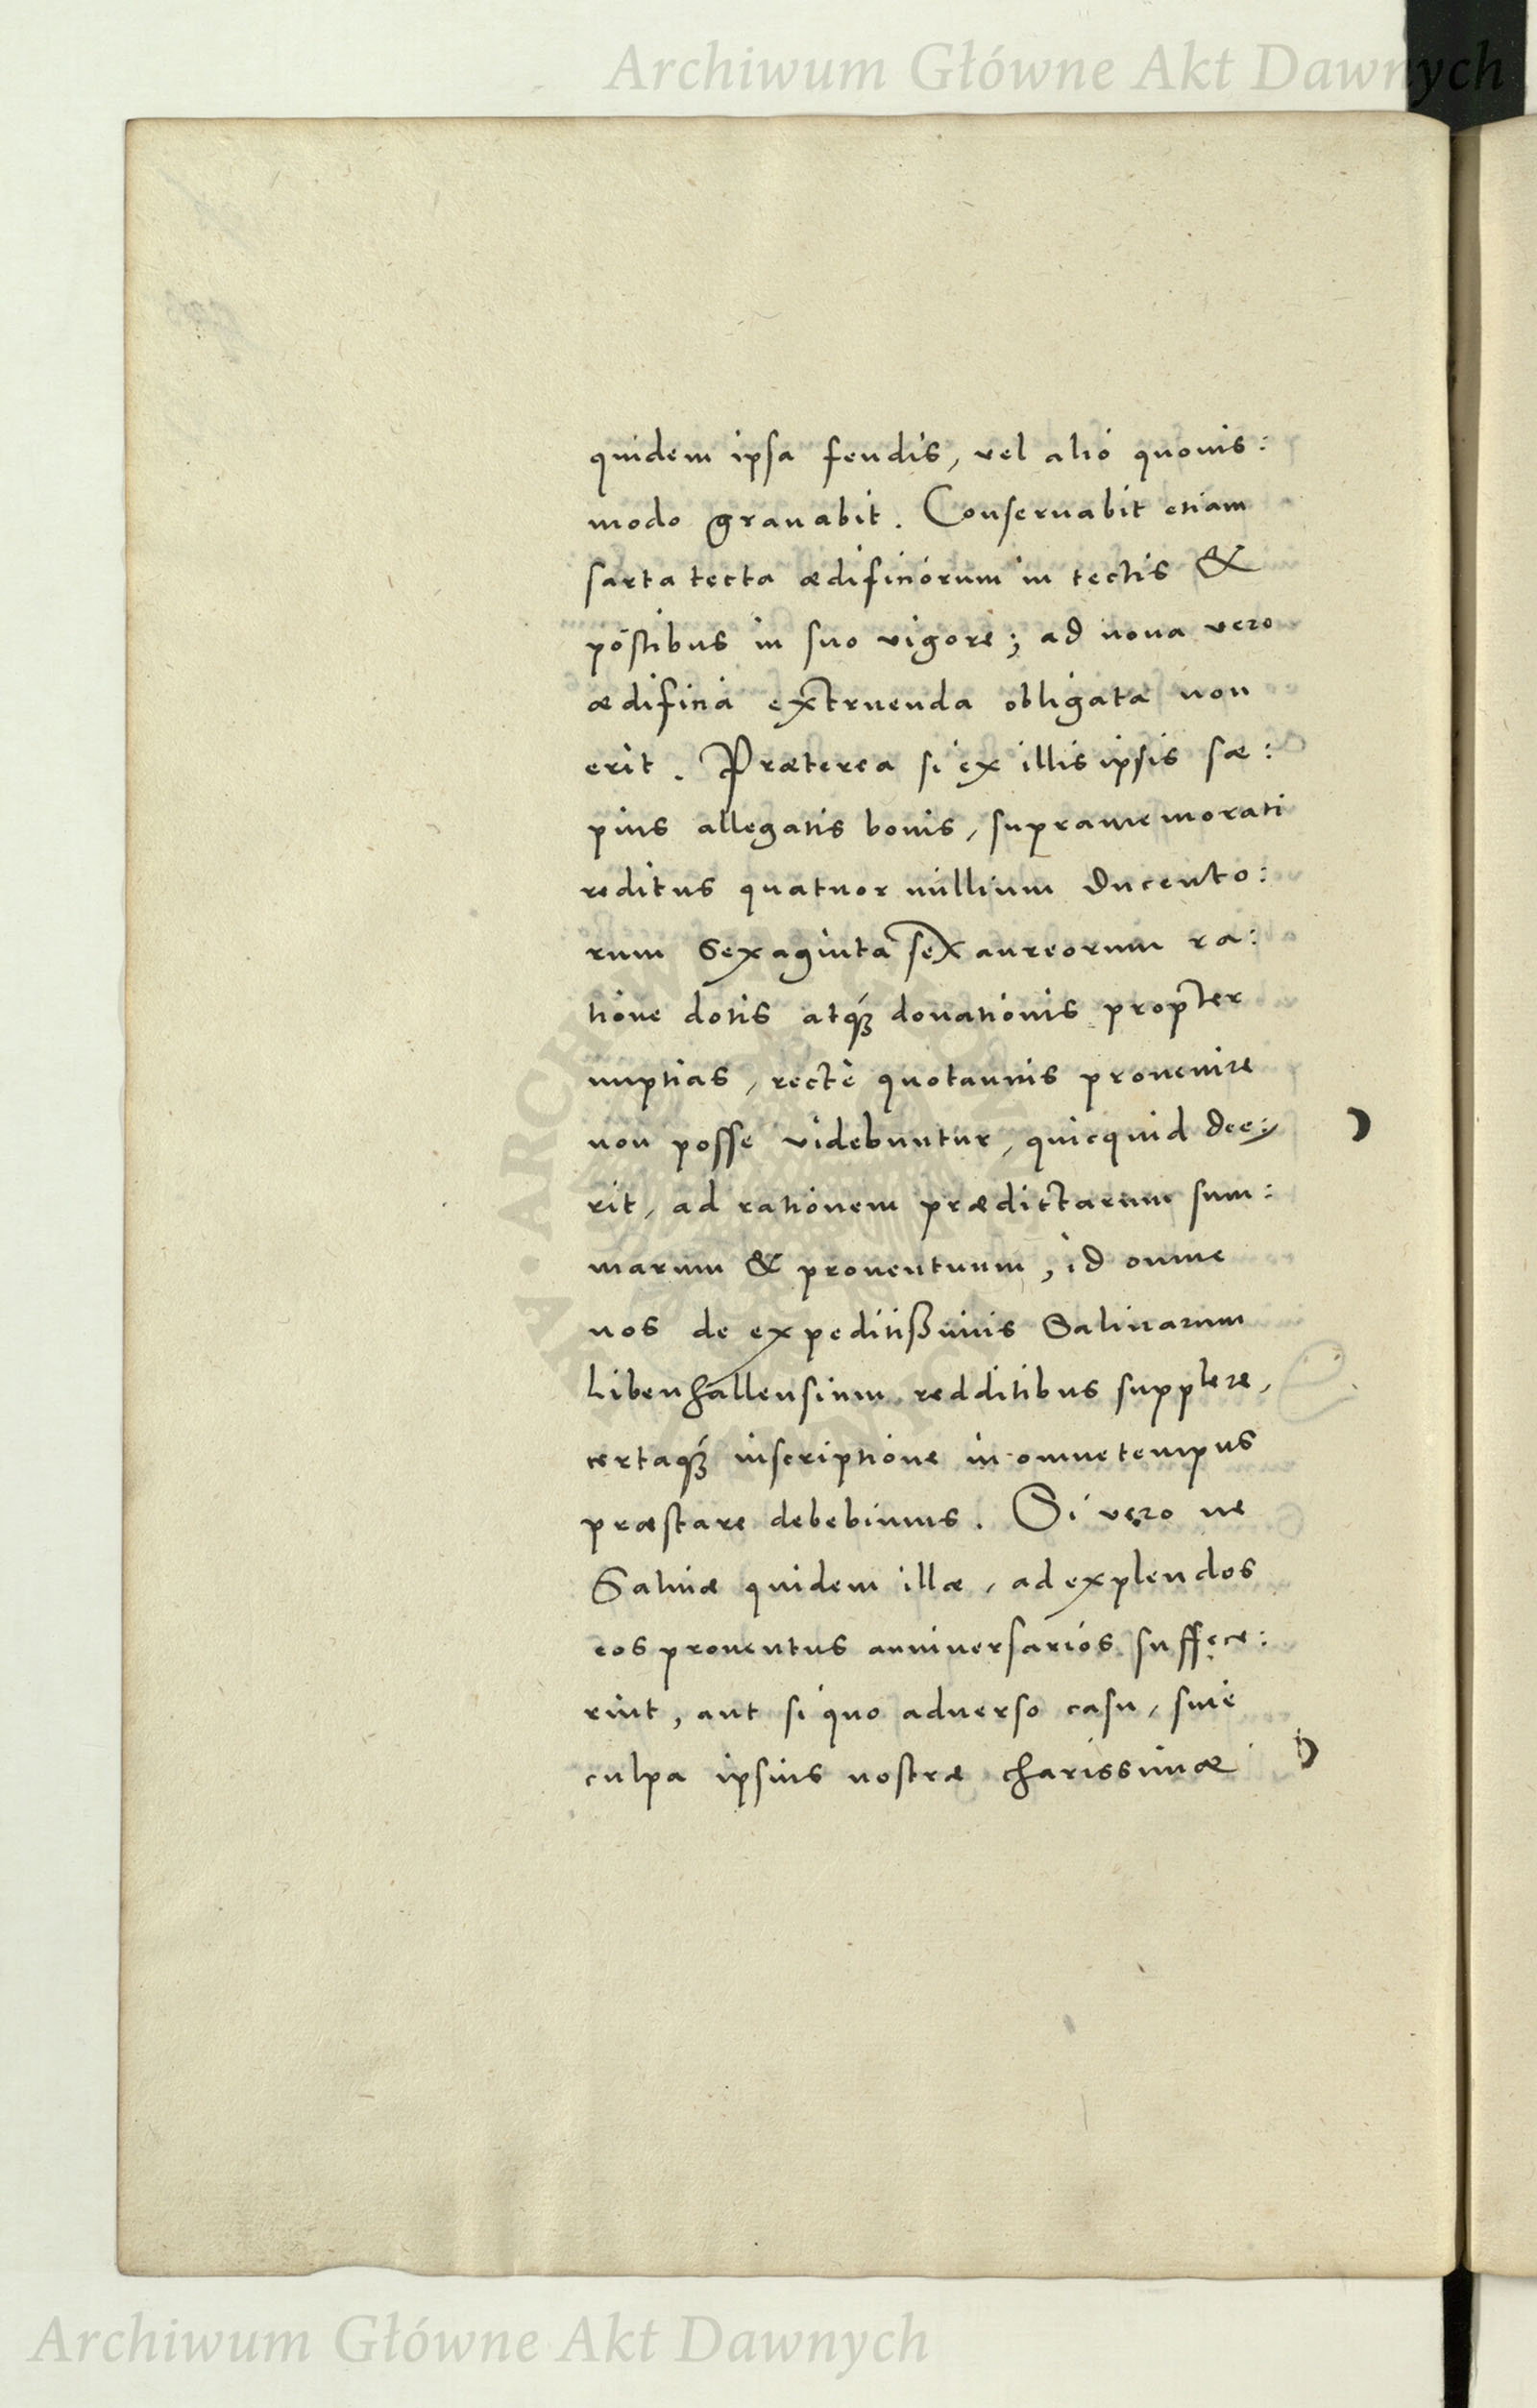 Archiwum Główne Akt Dawnych
quidem ipsa feudis, vel alio quouis:
modo grauabit. Conseruabit etiam
sarta tecta ædificiorum in tectis &
postibus in suo vigore; ad noua vero
ædificia extruenda obligata non
erit. Præterea si ex illis ipsis sæ:
pius allegatis bonis, supramemorati
reditus quatuor millium Ducento:
rum Sexaginta sex aureorum ra:
tione dotis atq́ꝫ donationis propter
nuptias, rectè quotannis prouenire
non posse videbuntur, quicquid dee:
rit, ad rationem prædictarum sum:
marum & prouentuum, id omne
nos de expeditißimis Salinarum
Libenhallensium redditibus supplere,
certaq́ꝫ inscriptione in omne tempus
præstare debebimus. Si vero ne
Salinæ quidem illæ, ad explendos
eos prouentus anniuersarios suffece:
rint, aut si quo aduerso casu, sine
culpa ipsius nostræ charissimæ
Archiwum Główne Akt Dawnych